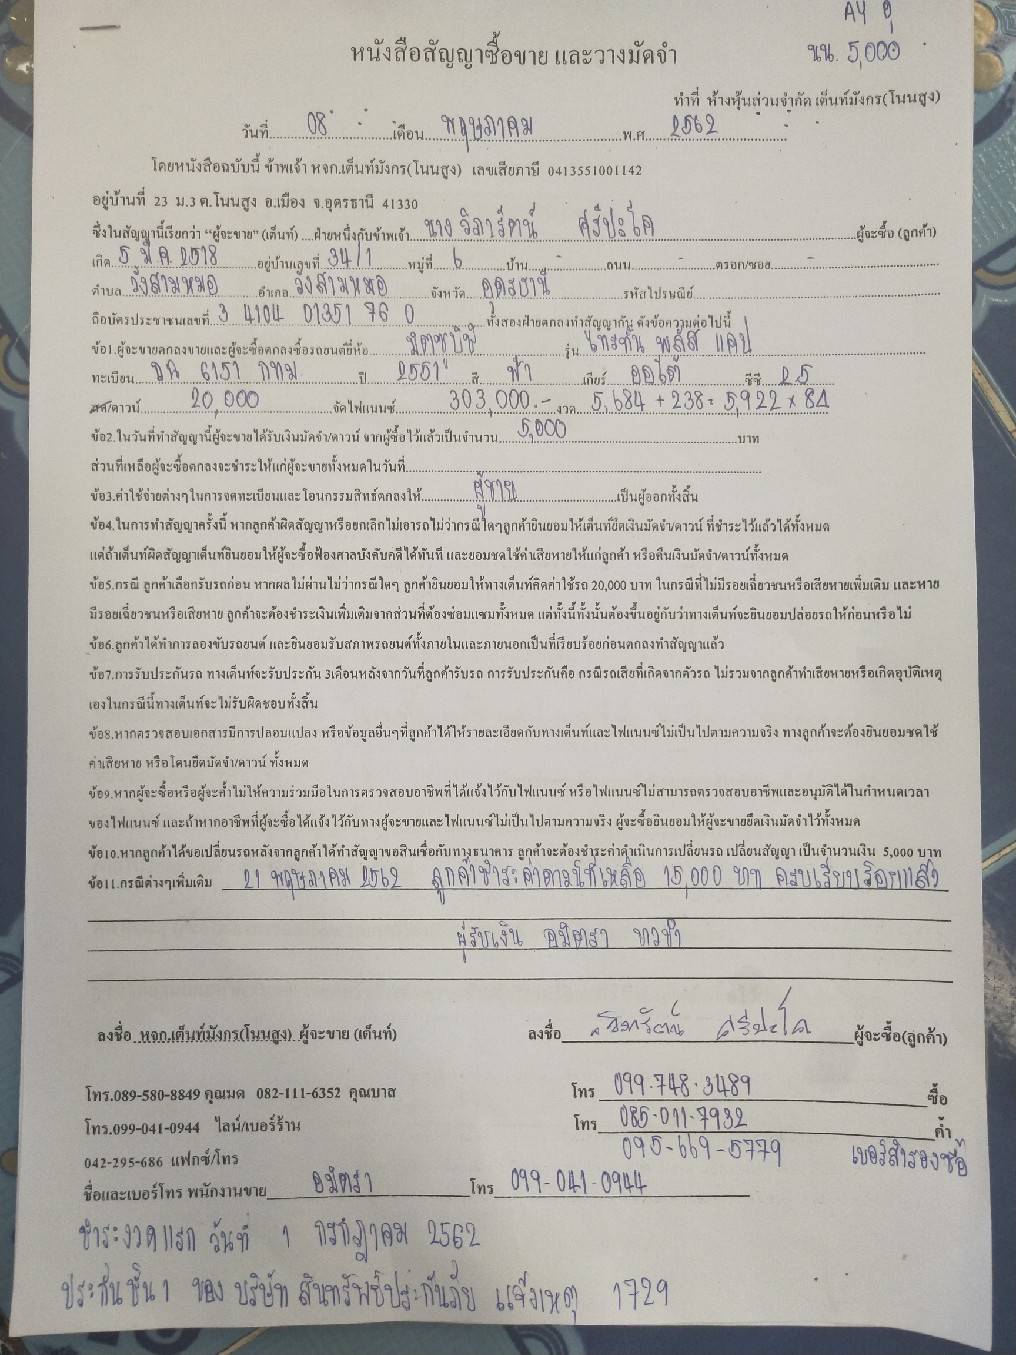 A4 อุ
หนังสือสัญญาซื้อขาย และวางมัดจำ
นน. 5,000
ทำที่ ห้างหุ้นส่วนจำกัด เต็นท์มังกร(โนนสูง)
วันที่ 08 เดือน พฤษภาคม พ.ศ 2562
โดยหนังสือฉบับนี้ ข้าพเจ้า หจก.เต็นท์มังกร(โนนสูง) เลขเสียภาษี 0413551001142
อยู่บ้านที่ 23 ม.3 ต.โนนสูง อ.เมือง จ.อุดรธานี 41330
ซึ่งในสัญญานี้เรียกว่า "ผู้จะขาย" (เต็นท์) ....ฝ่ายหนึ่งกับข้าพเจ้า นาง วิภารัตน์ ศรีปะโค ผู้จะซื้อ (ลูกค้า)
เกิด 5 มี.ค. 2518 อยู่บ้านเลขที่ 34/1 หมู่ที่ 6 บ้าน - ถนน - ตรอก/ซอย -
ตำบล วังสามหมอ อำเภอ วังสามหมอ จังหวัด อุดรธานี รหัสไปรษณีย์
ถือบัตรประชาชนเลขที่ 3 4104 01351 76 0 ทั้งสองฝ่ายตกลงทำสัญญากัน ดังข้อความต่อไปนี้
ข้อ1.ผู้จะขายตกลงขายและผู้จะซื้อตกลงซื้อรถยนต์ยี่ห้อ มิตซูบิชิ รุ่น ไทรทัน พลัส แคป
ทะเบียน ฌฉ 6151 กทม ปี 2551 สี ฟ้า เกียร์ ออโต้ ซีซี 2.5
สด/ดาวน์ 20,000 จัดไฟแนนซ์ 303,000.- งวด 5,684 + 238 = 5,922 x 84
ข้อ2.ในวันที่ทำสัญญานี้ผู้จะขายได้รับเงินมัดจำ/ดาวน์ จากผู้ซื้อไว้แล้วเป็นจำนวน 5,000 บาท
ส่วนที่เหลือผู้จะซื้อตกลงจะชำระให้แก่ผู้จะขายทั้งหมดในวันที่
ข้อ3.ค่าใช้จ่ายต่างๆในการจดทะเบียนและโอนกรรมสิทธ์ตกลงให้ ผู้ขาย เป็นผู้ออกทั้งสิ้น
ข้อ4.ในการทำสัญญาครั้งนี้ หากลูกค้าผิดสัญญาหรือยกเลิกไม่เอารถไม่ว่ากรณีใดๆลูกค้ายินยอมให้เต็นท์ยึดเงินมัดจำ/ดาวน์ ที่ชำระไว้แล้วได้ทั้งหมด
แต่ถ้าเต็นท์ผิดสัญญาเต็นท์ยินยอมให้ผู้จะซื้อฟ้องศาลบังคับคดีได้ทันที และยอมชดใช้ค่าเสียหายให้แก่ลูกค้า หรือคืนเงินมัดจำ/ดาวน์ทั้งหมด
ข้อ5.กรณี ลูกค้าเลือกรับรถก่อน หากผลไม่ผ่านไม่ว่ากรณีใดๆ ลูกค้ายินยอมให้ทางเต็นท์คิดค่าใช้รถ 20,000 บาท ในกรณีที่ไม่มีรอยเฉี่ยวชนหรือเสียหายเพิ่มเติม และหาย
มีรอยเฉี่ยวชนหรือเสียหาย ลูกค้าจะต้องชำระเงินเพิ่มเติมจากส่วนที่ต้องซ่อมแซมทั้งหมด แต่ทั้งนี้ทั้งนั้นต้องขึ้นอยู่กับว่าทางเต็นท์จะยินยอมปล่อยรถให้ก่อนหรือไม่
ข้อ6.ลูกค้าได้ทำการลองขับรถยนต์ และยินยอมรับสภาพรถยนต์ทั้งภายในและภายนอกเป็นที่เรียบร้อยก่อนตกลงทำสัญญาแล้ว
ข้อ7.การรับประกันรถ ทางเต็นท์จะรับประกัน 3เดือนหลังจากวันที่ลูกค้ารับรถ การรับประกันคือ กรณีรถเสียที่เกิดจากตัวรถ ไม่รวมจากลูกค้าทำเสียหายหรือเกิดอุบัติเหตุ
เองในกรณีนี้ทางเต็นท์จะไม่รับผิดชอบทั้งสิ้น
ข้อ8.หากตรวจสอบเอกสารมีการปลอมแปลง หรือข้อมูลอื่นๆที่ลูกค้าได้ให้รายละเอียดกับทางเต็นท์และไฟแนนซ์ไม่เป็นไปตามความจริง ทางลูกค้าจะต้องยินยอมชดใช้
ค่าเสียหาย หรือโดนยึดมัดจำ/ดาวน์ ทั้งหมด
ข้อ9.หากผู้จะซื้อหรือผู้จะค้ำไม่ให้ความร่วมมือในการตรวจสอบอาชีพที่ได้แจ้งไว้กับไฟแนนซ์ หรือไฟแนนซ์ไม่สามารถตรวจสอบอาชีพและอนุมัติได้ในกำหนดเวลา
ของไฟแนนซ์ และถ้าหากอาชีพที่ผู้จะซื้อได้แจ้งไว้กับทางผู้จะขายและไฟแนนซ์ไม่เป็นไปตามความจริง ผู้จะซื้อยินยอมให้ผู้จะขายยึดเงินมัดจำไว้ทั้งหมด
ข้อ10.หากลูกค้าได้ขอเปลี่ยนรถหลังจากลูกค้าได้ทำสัญญาขอสินเชื่อกับทางธนาคาร ลูกค้าจะต้องชำระค่าดำเนินการเปลี่ยนรถ เปลี่ยนสัญญา เป็นจำนวนเงิน 5,000 บาท
ข้อ11.กรณีต่างๆเพิ่มเติม 21 พฤษภาคม 2562 ลูกค้าชำระค่าดาวน์ที่เหลือ 15,000 บาท ครบเรียบร้อยแล้ว
ผู้รับเงิน อมิตรา
ลงชื่อ หจก.เต็นท์มังกร(โนนสูง) ผู้จะขาย (เต็นท์) ลงชื่อ วิภารัตน์ ศรีปะโค ผู้จะซื้อ(ลูกค้า)
โทร.089-580-8849 คุณมด 082-111-6352 คุณบาส โทร 099-748-3489 ซื้อ
โทร.099-041-0944 ไลน์/เบอร์ร้าน โทร 085-011-7932 ค้ำ
042-295-686 แฟกซ์/โทร 095-669-5779 เบอร์สำรองซื้อ
ชื่อและเบอร์โทร พนักงานขาย อมิตรา โทร 099-041-0944
ชำระงวดแรก วันที่ 1 กรกฎาคม 2562
ประกันชั้น 1 ของ บริษัท สินทรัพย์ประกันภัย แจ้งเหตุ 1729